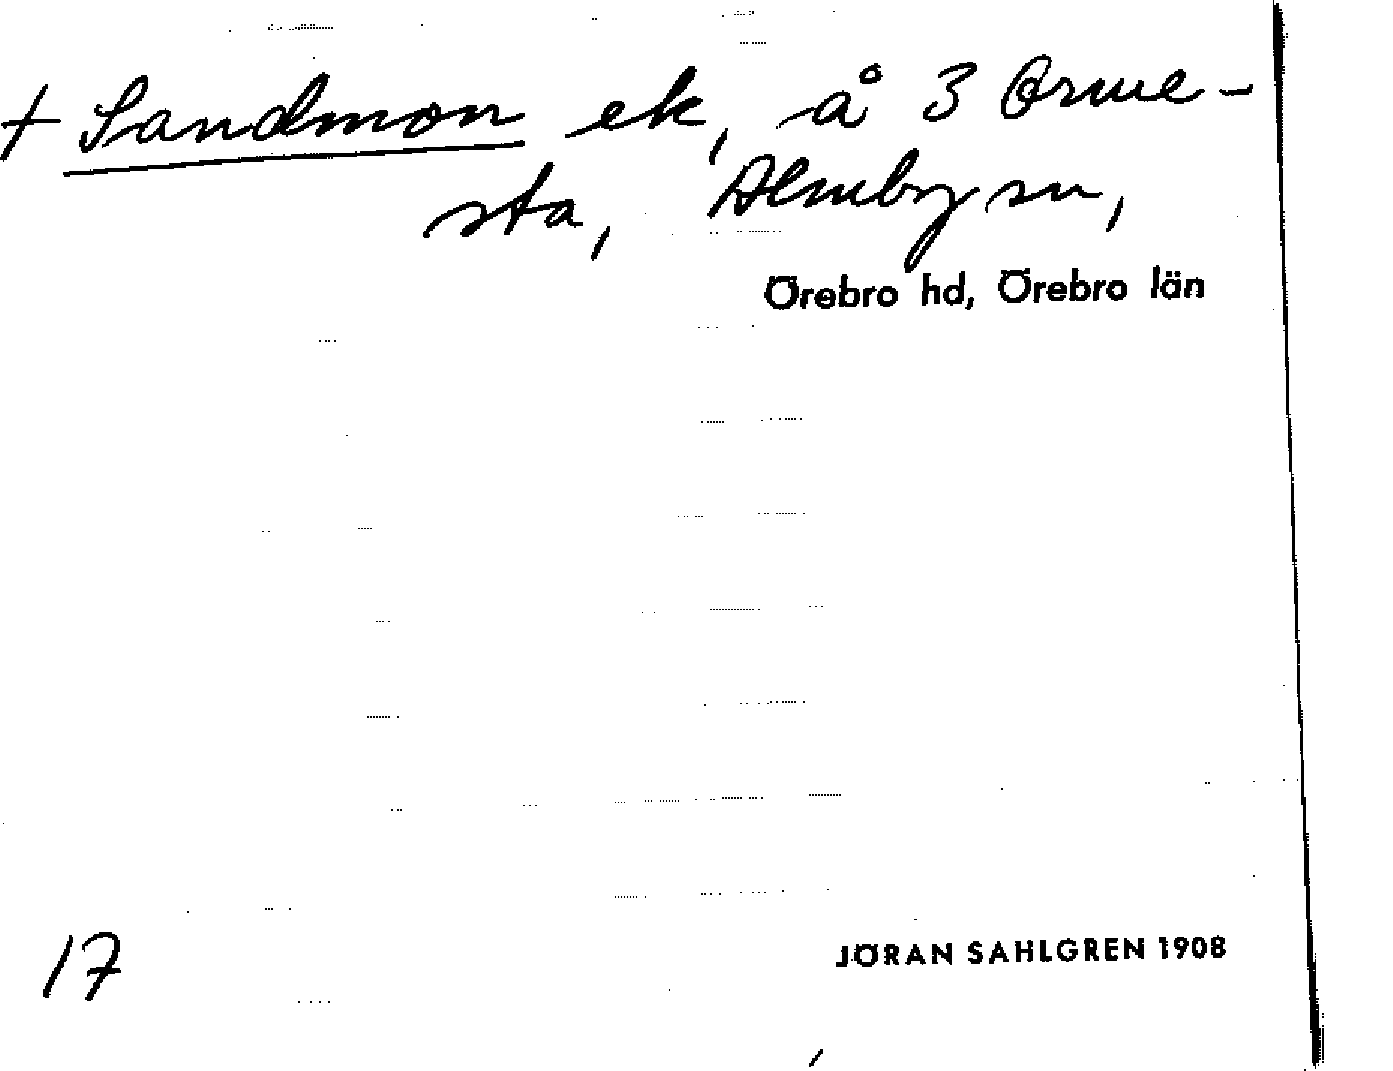 + Sandmon ek, å 3 Orme-
sta, Almby sn,
Örebro hd, Örebro län
17
JÖRAN SAHLGREN 1908